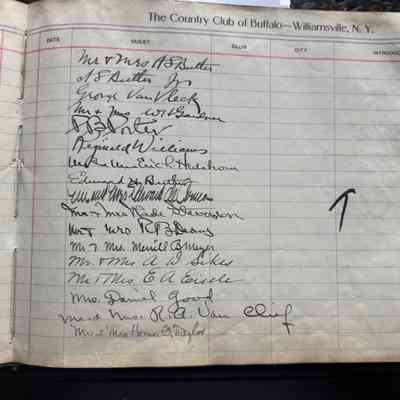 The Country Club of Buffalo—Williamsville, N. Y.
DATE GUEST CLUB CITY INTRODUC
Mr & Mrs A S Butler
A S Butler Jr
George Van Vleck
Mr & Mrs W Gardner
P B Porter
Reginald Williams
Mr & Mrs Erich
Edward H Butler
Mr and Mrs
Mr & Mrs Davidson
Mr & Mrs R B Deans
Mr & Mrs. Merrill B Meyer
Mr. & Mrs A W Sikes
Mr & Mrs. E A Eisele
Mrs. Daniel Good
Mr and Mrs. R. A. Van Clief
Mr & Mrs Homer D Taylor